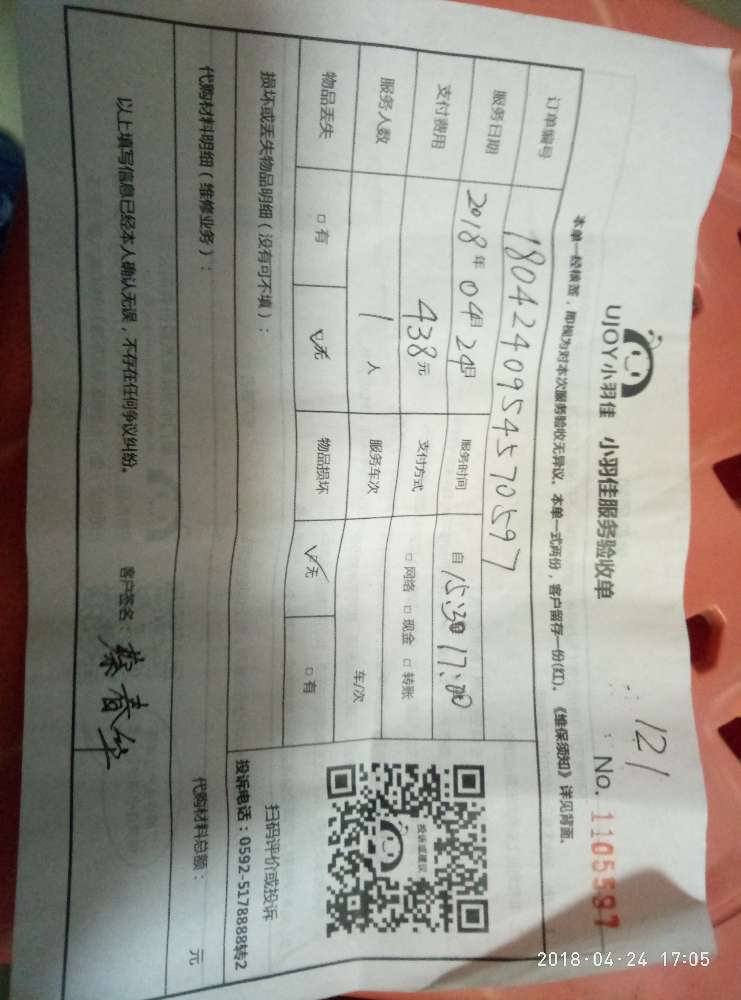 121
UJOY小羽佳 小羽佳服务验收单 No. 1105597
本单一经核签，即视为对本次服务验收无异议。本单一式两份，客户留存一份(红)。《维保须知》详见背面。
订单编号 1804240954570597
服务日期 2018年04月24日 服务时间 自 15:30 17:00
支付费用 438元 支付方式 □网络 □现金 □转账
服务人数 1人 服务车次 车/次
物品丢失 □有 ☑无 物品损坏 ☑无 □有
投诉或建议
扫码评价或投诉
投诉电话：0592-5178888转2
损坏或丢失物品明细（没有可不填）：
代购材料明细（维修业务）： 代购材料总额： 元
以上填写信息已经本人确认无误，不存在任何争议纠纷。 客户签名：蔡春华
2018-04-24 17:05